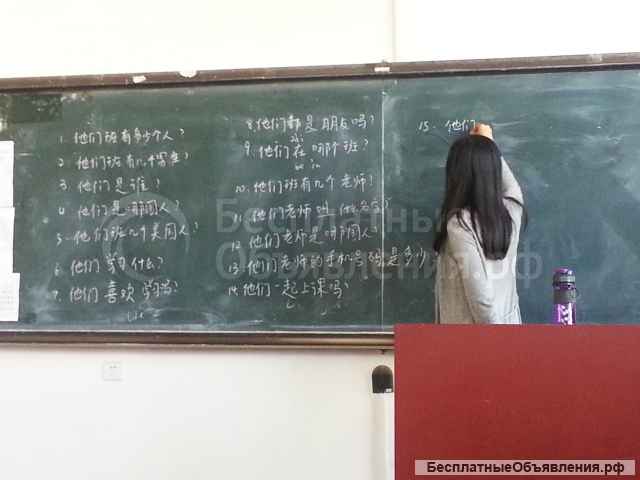 1. 他们班有多少个人？
2. 他们班有几个
3. 他们是谁？
4. 他们是哪国人？
5. 他们班几个美国人？
6. 他们学习什么？
7. 他们喜欢学习吗？
8. 他们都是朋友吗？
9. 他们在哪个班？
10. 他们班有几个老师？
11. 他们老师叫什么名字？
12. 他们老师是哪国人？
13. 他们老师的手机号码是多少
14. 他们一起上课吗？
15. 他们
Бесплатные
Объявления.рф
БесплатныеОбъявления.рф